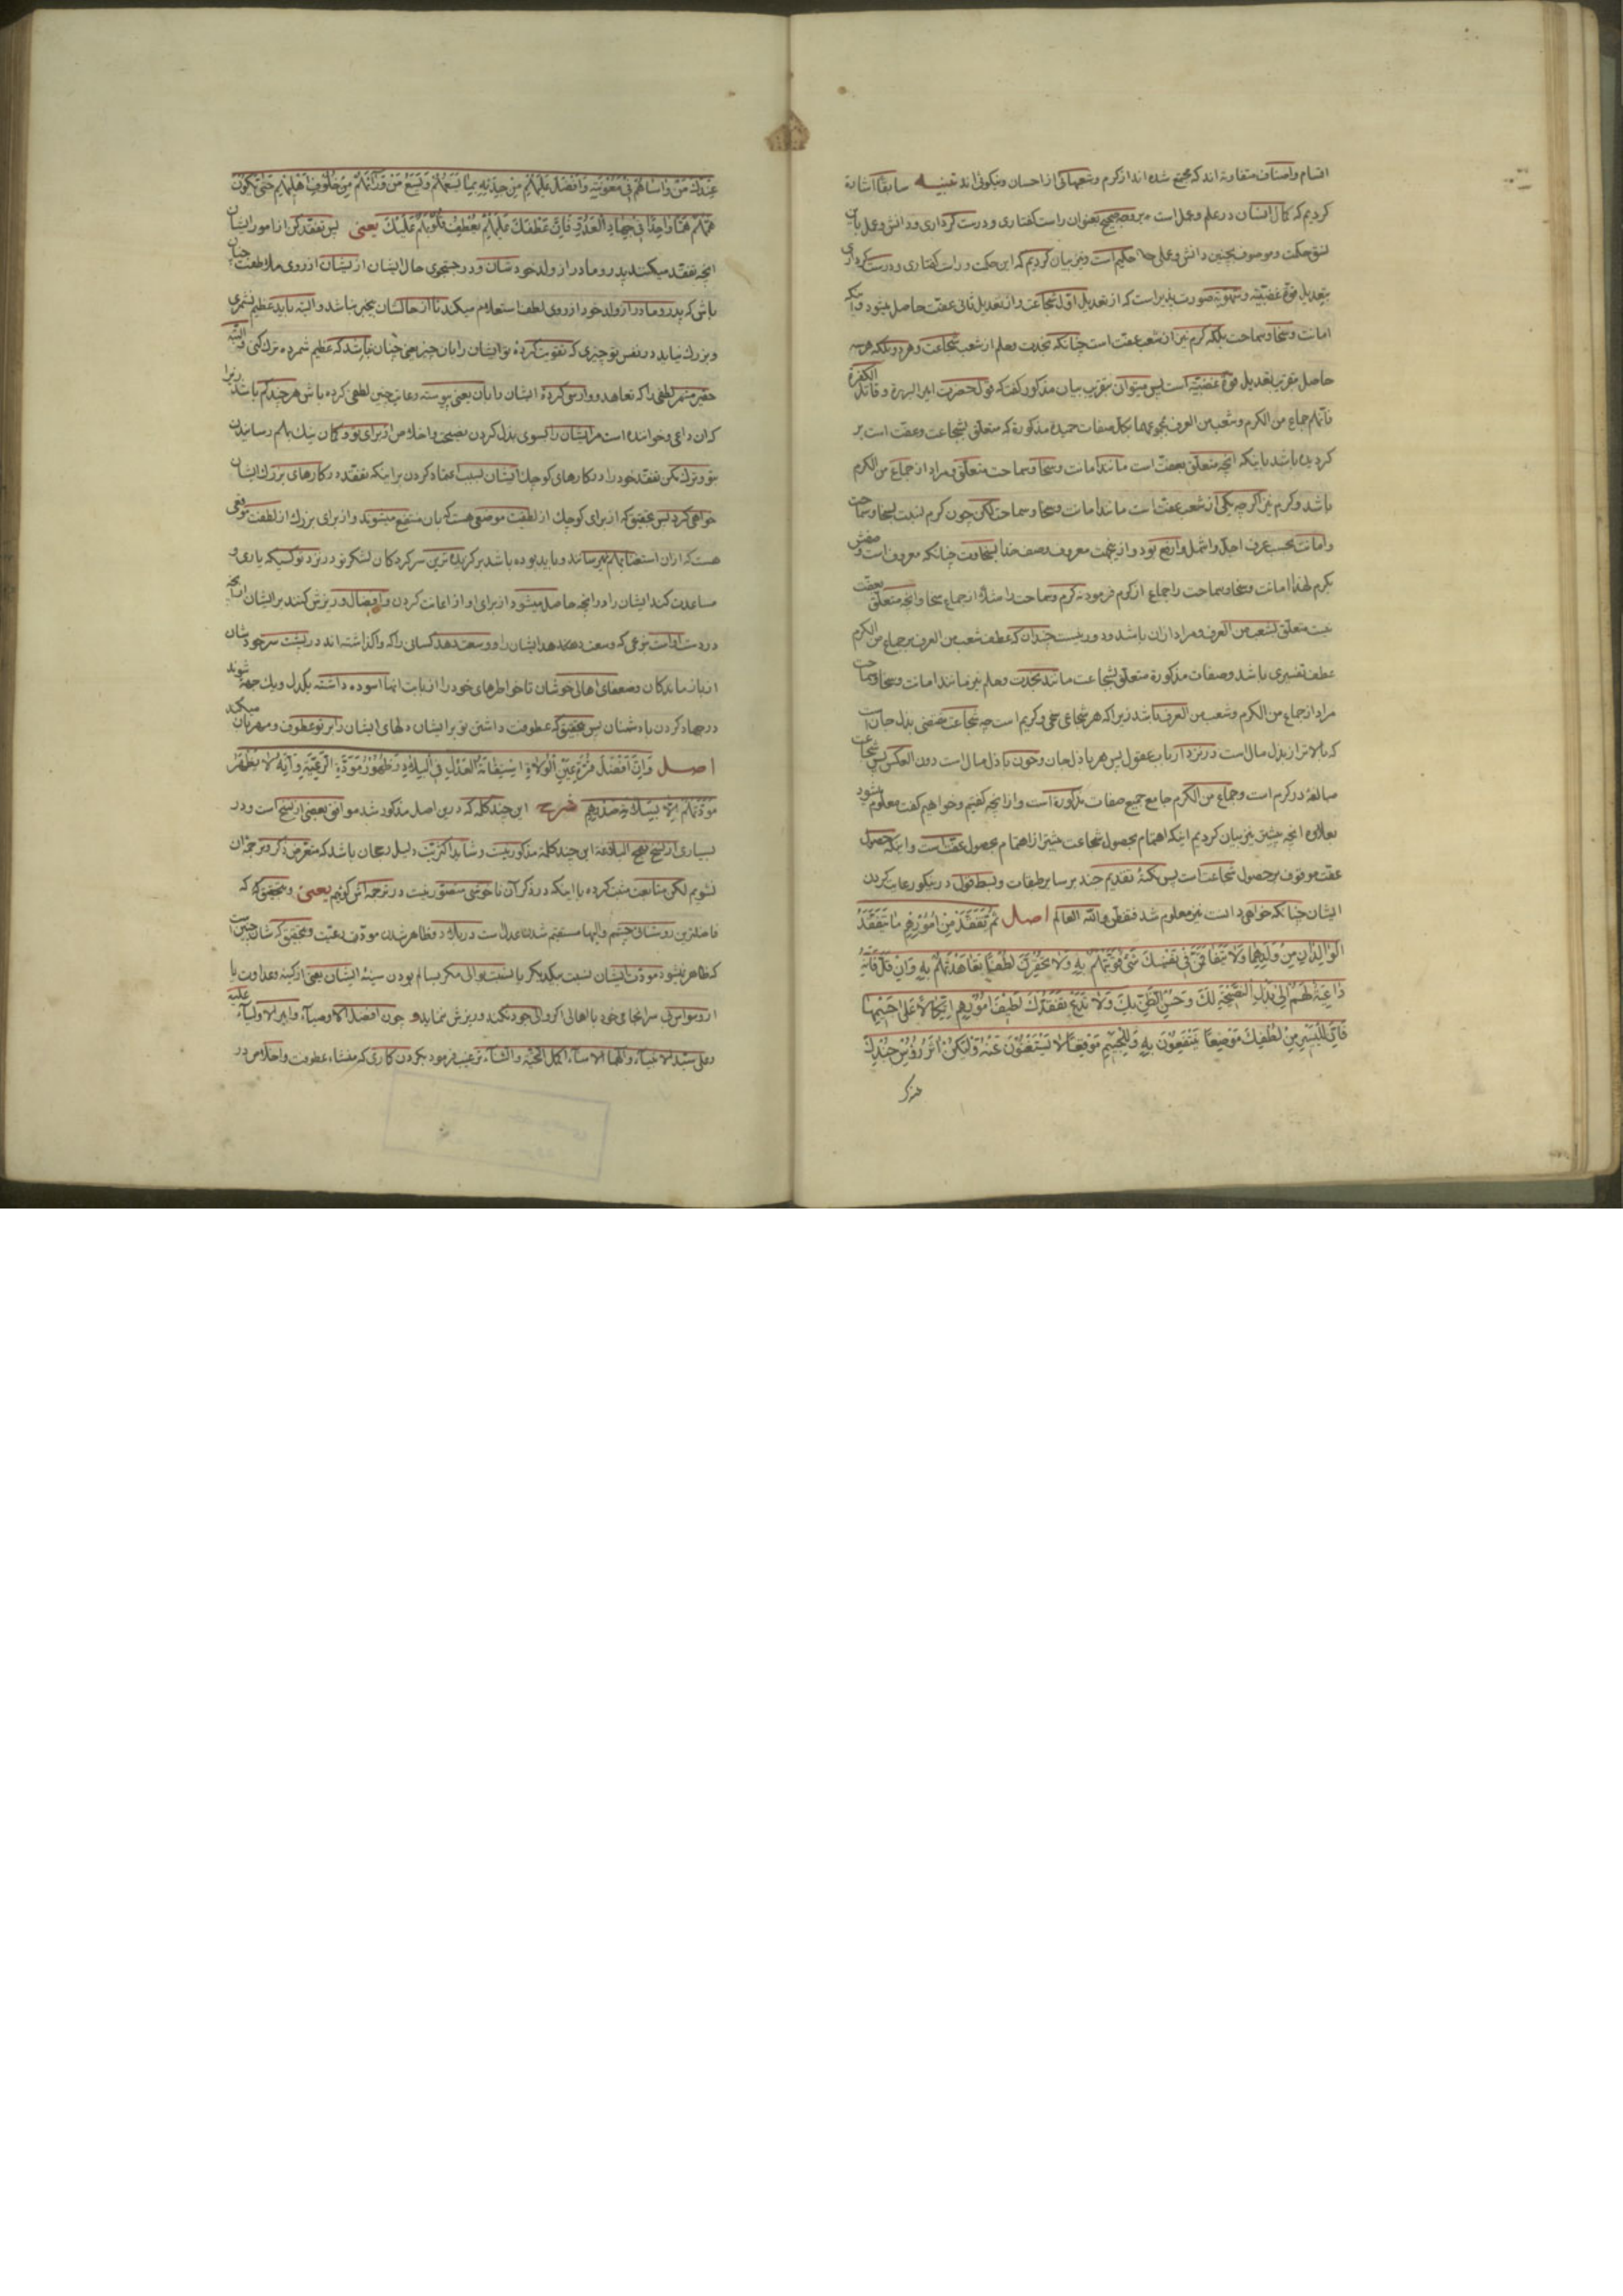 اقسام واصناف متفاوته اند که مجتمع شده اند از کرم وشعبهائی از احسان ونیکوئی اند تنبیه سابقا اشاره
کردیم که کمال انسان در علم وعمل است بعنوان راست گفتاری ودرست کرداری ودانش وعمل باین
نسق حکمت وموصوف بچنین دانش وعملی حکیم است ونیز بیان کردیم که این حکمت وراست گفتاری ودرست کرداری
بتعدیل قوّهٔ غضبیّه وشهویّه صورت پذیر است که از تعدیل اوّل شجاعت واز تعدیل ثانی عفّت حاصل میشود واینکه
امانت وسخا وسماحت بلکه کرم نیز از شعب عفّت است چنانکه نجدت وحلم از شعب شجاعت وهر دو بلکه هر سه
حاصل بتعدیل قوّهٔ غضبیّه است پس میتوان بتقریب بیان مذکور گفت که قول حضرت امیر البررة وقاتل الکفرة
فانّهم جماع من الکرم وشعب من العرف مجموعهما بکلّ صفات حمیدهٔ مذکوره که متعلّق بشجاعت وعفّت است بر
کردیده باشد باینکه انچه متعلّق بعفّت است مانند امانت وسخا وسماحت متعلّق ومراد از جماع من الکرم
باشد وکرم نیز اگرچه یکی از شعب عفّت است مانند امانت وسخا وسماحت لکن چون کرم نسبت بسخا وسماحت
وامانت بحسب عرف اجلّ واشمل وارفع بود وازینجهت معروف وصف خدا بسخاوت چنانکه معروف است وصفش
بکرم لهذا امانت وسخا وسماحت را جماع از کرم فرمود نه کرم وسماحت را مثلا از جماع سخا وانچه متعلّق بعفّت
نیست متعلّق بشعب من العرف ومراد از ان باشد ودور نیست چندان که عطف شعب من العرف بر جماع من الکرم
عطف تفسیری باشد وصفات مذکوره متعلّق بشجاعت مانند نجدت وحلم نیز مانند امانت وسخا وسماحت
مراد از جماع من الکرم وشعب من العرف باشد زیرا که هر شجاعی سخی وکریم است چه شجاعت مقتضی بذل جان است
که بالاتر از بذل مال است در نزد ارباب عقول پس هر باذل جان وخون باذل مال است دون العکس پس شجاعت
مبالغه در کرم است وجماع من الکرم جامع جمیع صفات مذکوره است واز انچه گفتیم وخواهیم گفت معلوم میشود
بعلاوه انچه پیش نیز بیان کردیم اینکه اهتمام بحصول شجاعت بیشتر از اهتمام بحصول عفّت است واینکه حصول
عفّت موقوف بر حصول شجاعت است پس نکتهٔ تقدیم جند بر سایر طبقات وبسط قول در نیکو رعایت کردن
ایشان چنانکه خواهی دانست نیز معلوم شد فتفطّن واللّه العالم اصل ثُمَّ تَفَقَّدْ مِنْ اُمُوْرِهِمْ مَا یَتَفَقَّدُ
الْوَالِدَانِ مِنْ وَلَدِهِمَا وَلَا یَتَفَاقَمَنَّ فِی نَفْسِكَ شَیْءٌ قَوَّیْتَهُمْ بِهِ وَلَا تَحْقِرَنَّ لُطْفًا تَعَاهَدْتَهُمْ بِهِ وَاِنْ قَلَّ فَاِنَّهُ
دَاعِیَةٌ لَهُمْ اِلٰی بَذْلِ النَّصِیْحَةِ لَكَ وَحُسْنِ الظَّنِّ بِكَ وَلَا تَدَعْ تَفَقُّدَ لَطِیْفِ اُمُوْرِهِمْ اِتِّکَالًا عَلٰی جَسِیْمِهَا
فَاِنَّ لِلْیَسِیْرِ مِنْ لُطْفِكَ مَوْضِعًا یَنْتَفِعُوْنَ بِهِ وَلِلْجَسِیْمِ مَوْقِعًا لَا یَسْتَغْنُوْنَ عَنْهُ وَلْیَکُنْ اٰثَرُ رُؤُوْسِ جُنْدِكَ
عِنْدَكَ مَنْ وَاسَاهُمْ فِی مَعُوْنَتِهِ وَاَفْضَلَ عَلَیْهِمْ مِنْ جِدَتِهِ بِمَا یَسَعُهُمْ وَیَسَعُ مَنْ وَرَائَهُمْ مِنْ خُلُوْفِ اَهْلِیْهِمْ حَتّٰی یَکُوْنَ
هَمُّهُمْ هَمًّا وَاحِدًا فِی جِهَادِ الْعَدُوِّ فَاِنَّ عَطْفَكَ عَلَیْهِمْ یَعْطِفُ قُلُوْبَهُمْ عَلَیْكَ یعنی پس تفقّد کن از امور ایشان
انچه تفقّد میکنند پدر ومادر از ولد خودشان ودر جستجوی حال ایشان از ایشان از روی ملاطفت چنان
باش که پدر ومادر از ولد خود از روی لطف استعلام میکند تا از حالشان بیخبر نباشد والبته باید عظیم نشمری
وبزرك نیاید در نفس تو چیزی که تقویت کردهٔ تو ایشان را بان چیز یعنی چنان نباشد که عظیم شمرده ترك کنی والبتّه
حقیر مشمر لطفی را که تعاهد ووارسی کردهٔ ایشان را بان یعنی پیوسته رعایت چنین لطفی کرده باش هرچند کم باشد زیرا
که ان داعی وخواننده است مر ایشان را بسوی بذل کردن نصیحت واخلاص از برای تو وگمان نیك بهم رسانیدن
بتو وترك مکن تفقّد خود را در کارهای کوچك ایشان بسبب اعتماد کردن بر اینکه تفقّد در کارهای بزرك ایشان
خواهی کرد پس بتحقیق که از برای کوچك از لطفت موضعی هست که بان منتفع میشوند واز برای بزرك از لطفت موقعی
هست که ازان استغنا بهم نمیرسانند وباید بوده باشد برگزیده‌ترین سرکردکان لشکر تو در نزد تو کسیکه یاری و
مساعدت کند ایشان را در انچه حاصل میشود از برای او از اعانت کردن وافضال وریزش کنند بر ایشان از انچه
در دست اوست بنوعی که وسعت دهد ایشان را ووسعت دهد کسانی را که واگذاشته اند در پشت سر خودشان
از بازماندکان وضعفای اهالی خوشان تا خواطرهای خود را از بابت انها اسوده داشته یکدل ویك جهة شوند
در جهاد کردن با دشمنان پس بتحقیق که عطوفت داشتن تو بر ایشان دلهای ایشان را بر تو عطوف ومهربان میکند
اصل وَاِنَّ اَفْضَلَ قُرَّةِ عَیْنِ الْوُلَاةِ اِسْتِقَامَةُ الْعَدْلِ فِی الْبِلَادِ وَظُهُوْرُ مَوَدَّةِ الرَّعِیَّةِ وَاِنَّهُ لَا تَظْهَرُ
مَوَدَّتُهُمْ اِلَّا بِسَلَامَةِ صُدُوْرِهِمْ شرح این چند کلمه که درین اصل مذکور شد موافق بعضی از نسخ است ودر
بسیاری از نسخ نهج البلاغة این چند کلمه مذکور نیست وشاید اکثریّت دلیل رجحان باشد که متعرّض ذکر وترجمهٔ ان
نشویم لکن متابعت مثبت کرده با اینکه در ذکر آن ناخوشی متصوّر نیست در ترجمه اش گوئیم یعنی وبتحقیق که
فاضلترین روشنائی چشم والیها مستقیم شدن عدل است در بلاد وظاهر شدن مودّت رعیّت وبتحقیق که شان چنین است
که ظاهر نمیشود مودّت ایشان نسبت بیکدیگر یا نسبت بوالی مگر بسالم بودن سینهٔ ایشان یعنی از کینه وعداوت یا
از وسواس بی سرانجامی خود یا اهالی اگر والی جود نکند وریزش ننماید و چون افضل الاوصیآء وامیر الاولیآء علیه
وعلی سیّد الانبیآء والهما الامنآء اکمل التحیّة والثنآء ترغیب فرمود بکردن کاری که منشاء عطوفت واخلاص در